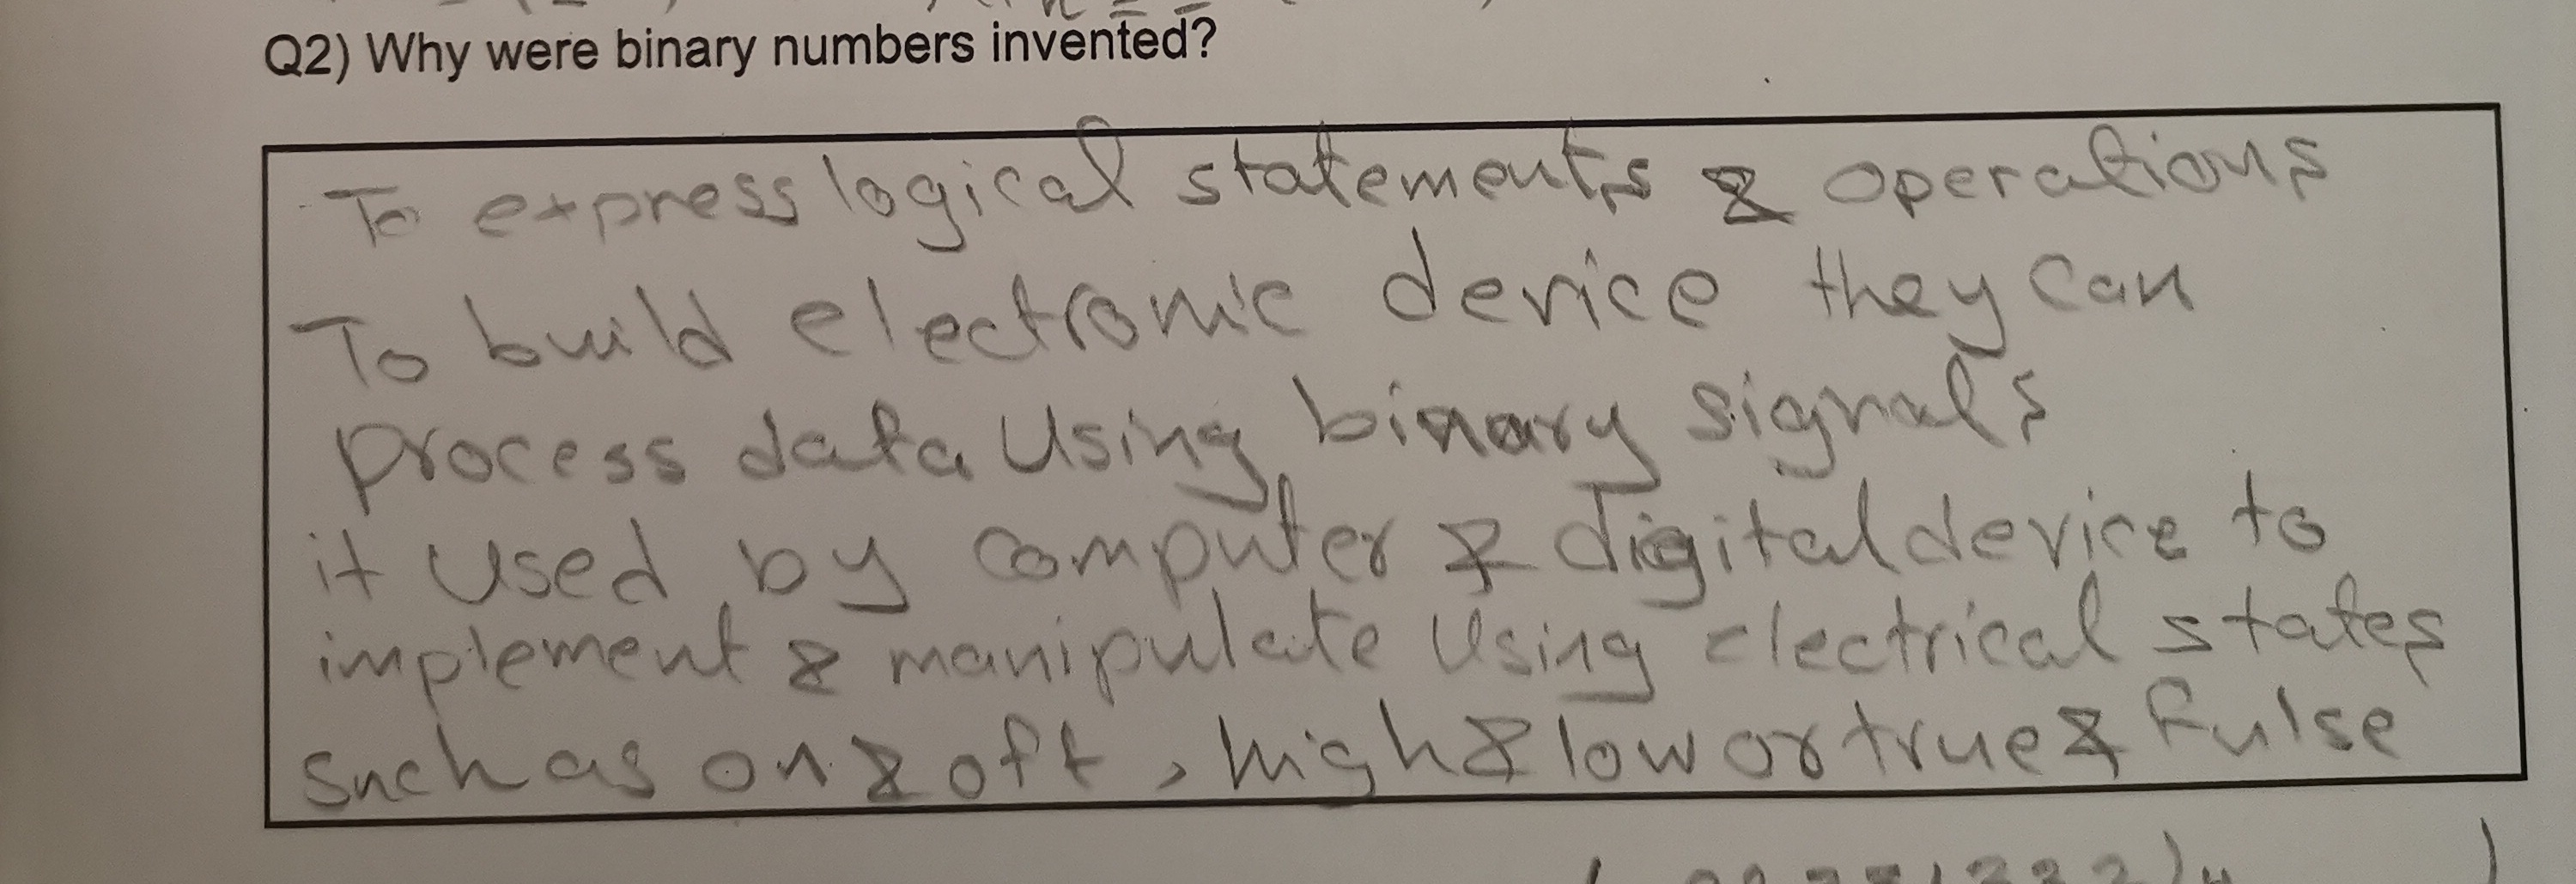 Q2) Why were binary numbers invented?
To express logical statements & operations
To build electronic device they can
process data Using binary signals
it Used by computer & digital device to
implement & manipulate Using electrical states
such as on & off , high & low or true & fulse